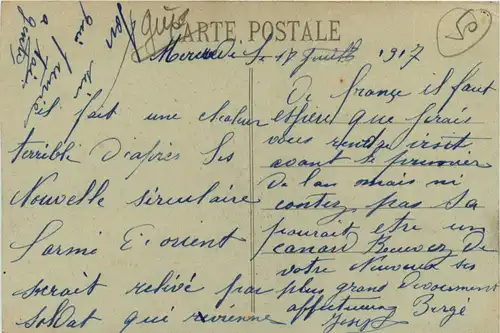 CARTE POSTALE
Guise
50
Mercredi Le 18 Juillet 1917
il fait une chaleur
terrible D'apres Les
Nouvelle sirculaire
Larmé D'orient
serait relivé par
soldat qui revienne
De france il faut
espere que j'irais
vous rendre visit
avant le premier
De lan mais ni
contez pas Sa
pourait etre un
canard Recevez de
votre Neuveux ses
plus grand Devouement
affectueux Bergé
Josep
Ton
qui
a